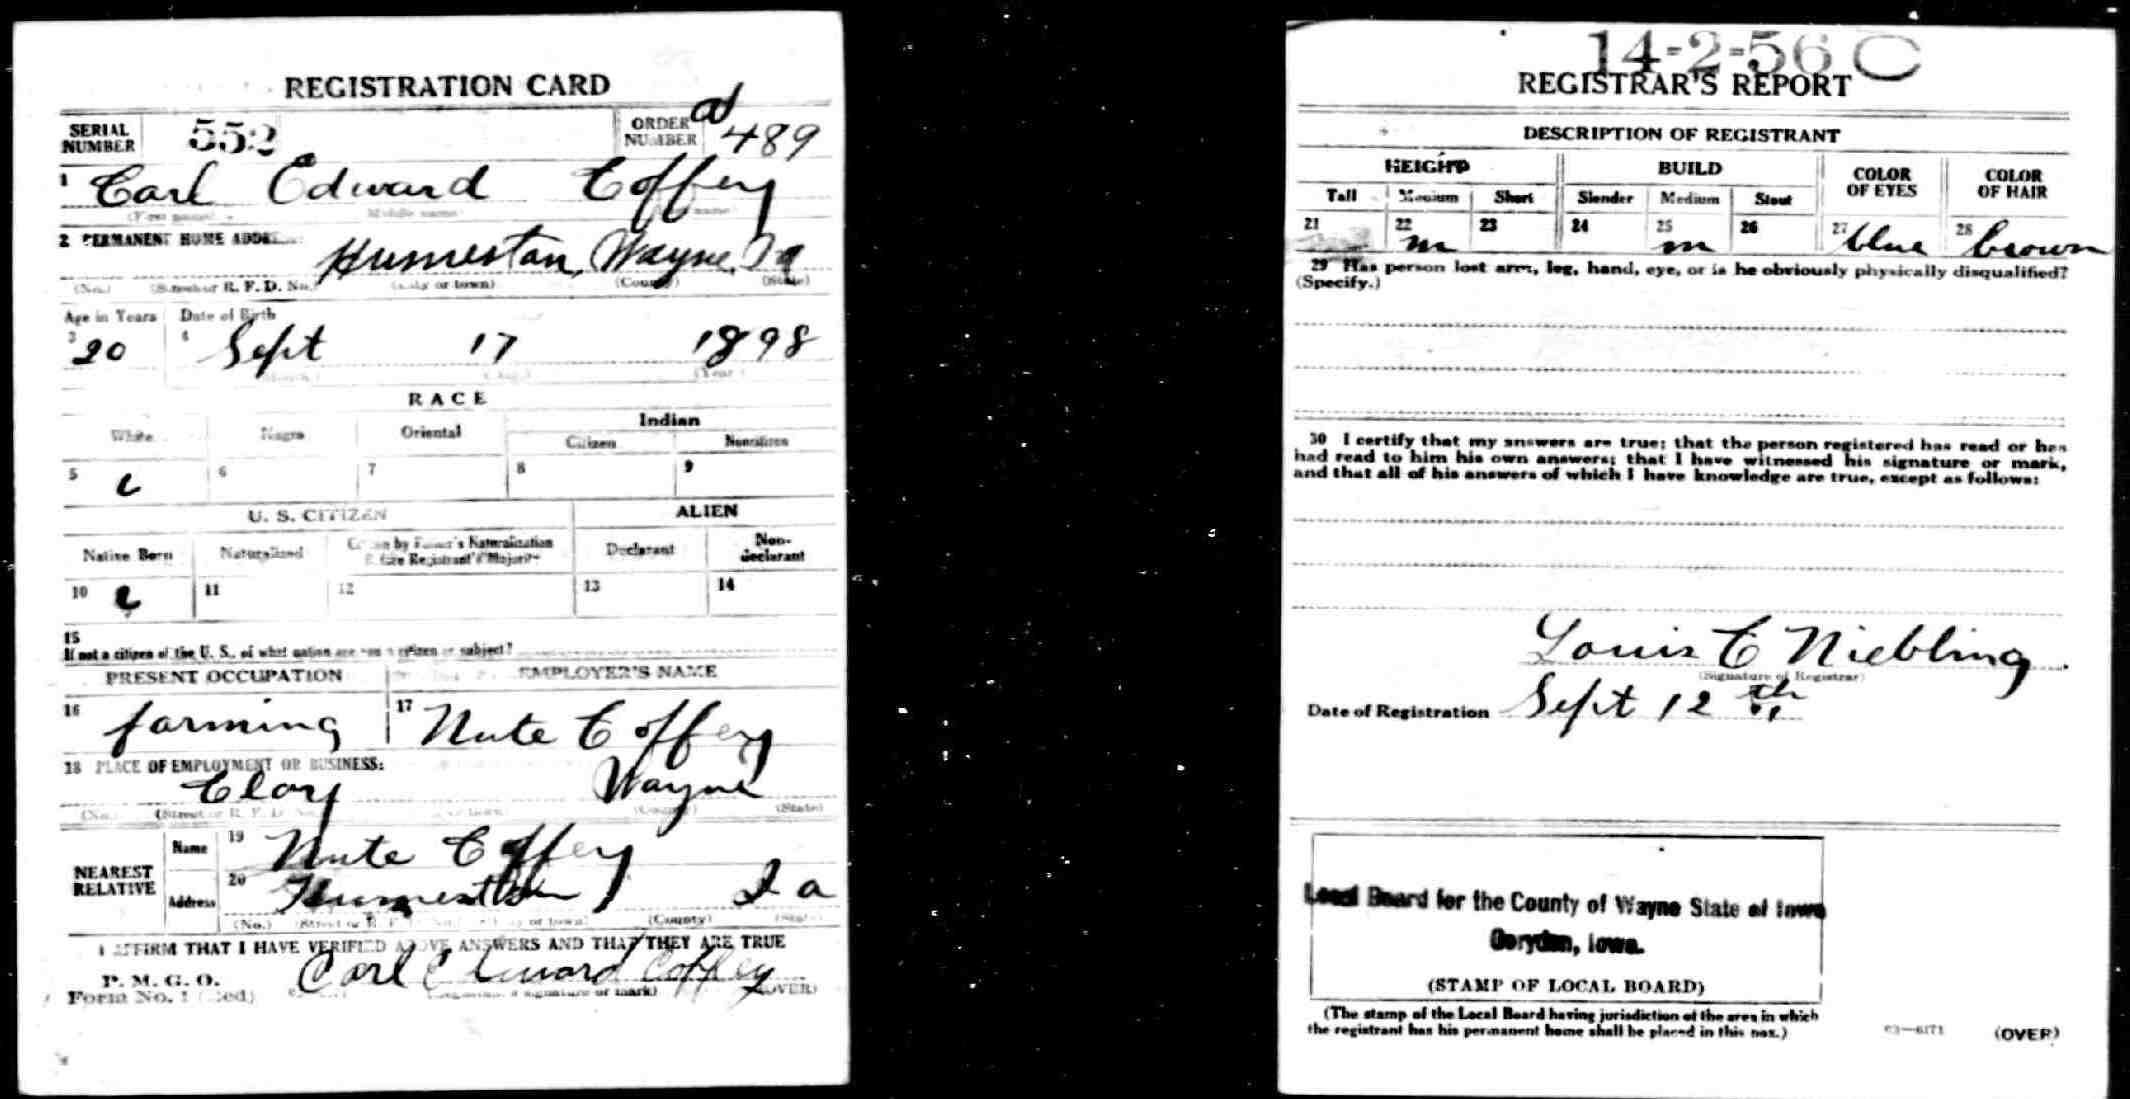 REGISTRATION CARD
SERIAL NUMBER 552 ORDER NUMBER A 489
1 Carl Edward Coffey
(First name) Middle name name)
2 PERMANENT HOME ADDRE Humeston, Wayne, Ia
(No.) (Street or R. F. D. No.) (City or town) (County) (State)
Age in Years Date of Birth
3 20 4 Sept 17 1898
(Month.) (Day.) (Year.)
RACE
White Negro Oriental Indian
Citizen Noncitizen
5 c 6 7 8 9
U. S. CITIZEN ALIEN
Native Born Naturalized Citizen by Father's Naturalization Before Registrant's Majority Declarant Non-declarant
10 c 11 12 13 14
15
If not a citizen of the U. S., of what nation are you a citizen or subject?
PRESENT OCCUPATION EMPLOYER'S NAME
16 farming 17 Nute Coffey
18 PLACE OF EMPLOYMENT OR BUSINESS:
Clay Wayne
(No.) (Street or R. F. D. No.) (County) (State)
NEAREST RELATIVE Name 19 Nute Coffey
Address 20 Humeston Ia
(No.) (Street or R. F. D. No.) (City or town) (County) (State)
I AFFIRM THAT I HAVE VERIFIED ABOVE ANSWERS AND THAT THEY ARE TRUE
P. M. G. O.
Form No. 1 (Red) Carl Edward Coffey
(Registrant's signature or mark) (OVER)
14-2-56 C
REGISTRAR'S REPORT
DESCRIPTION OF REGISTRANT
HEIGHT BUILD COLOR OF EYES COLOR OF HAIR
Tall Medium Short Slender Medium Stout
21 22 m 23 24 25 m 26 27 blue 28 brown
29 Has person lost arm, leg, hand, eye, or is he obviously physically disqualified?
(Specify.)
30 I certify that my answers are true; that the person registered has read or has
had read to him his own answers; that I have witnessed his signature or mark,
and that all of his answers of which I have knowledge are true, except as follows:
Louis C Niebling
(Signature of Registrar)
Date of Registration Sept 12 th
Local Board for the County of Wayne State of Iowa
Corydon, Iowa.
(STAMP OF LOCAL BOARD)
(The stamp of the Local Board having jurisdiction of the area in which
the registrant has his permanent home shall be placed in this box.)
03—6171 (OVER)